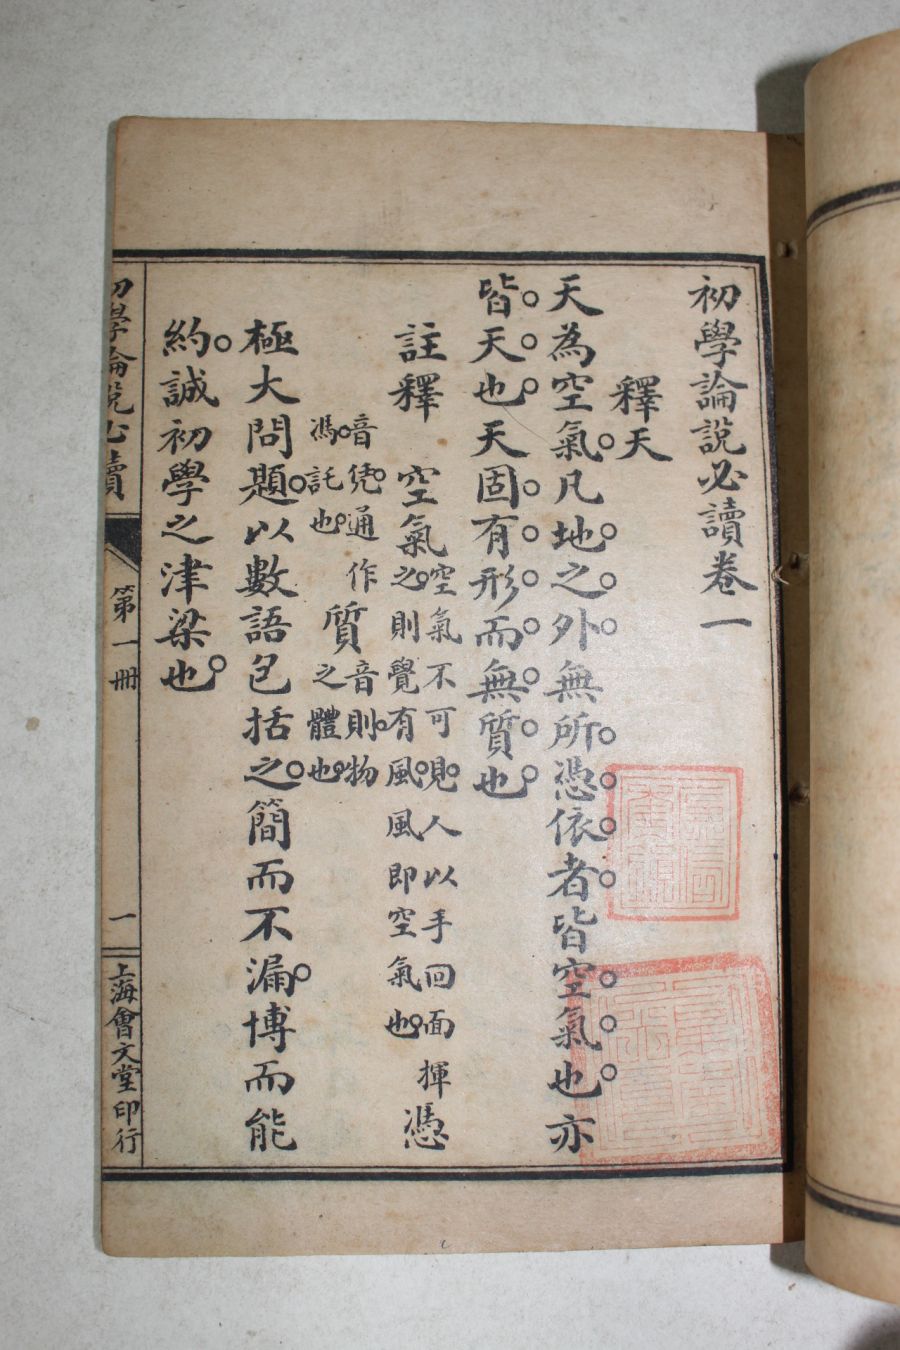 初學論說必讀卷一
釋天
天為空氣。凡地之外無所憑依者皆空氣也亦
皆天也天固有形而無質也
註釋 空氣 空氣不可見。人以手回面揮
之。則覺有風。風即空氣也。 憑
音凭。通作
馮。託也。 質 音則。物
之體也。
極大問題。以數語包括之。簡而不漏。博而能
約。誠初學之津梁也。
初學論說必讀
第一冊
一
上海會文堂印行